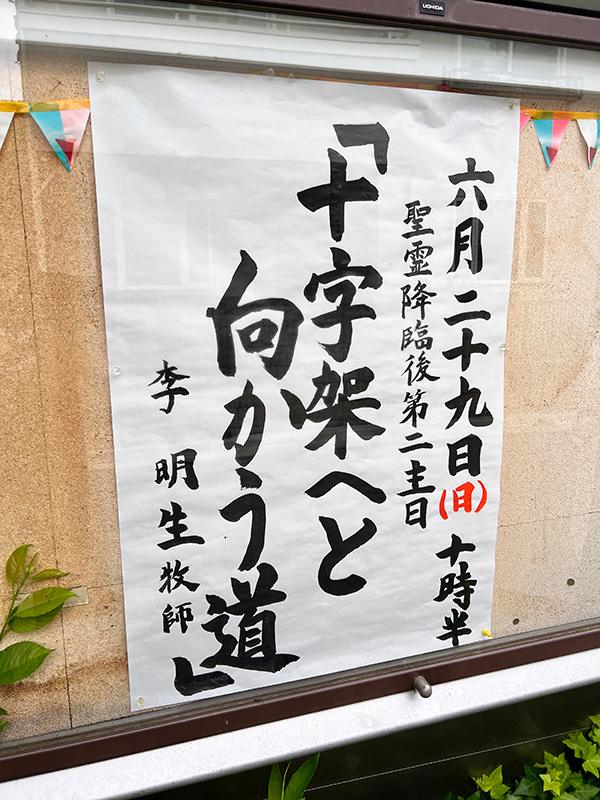 六月二十九日(日) 十時半
聖霊降臨後第二主日
「十字架へと
向かう道」
李 明生牧師
UCHIDA